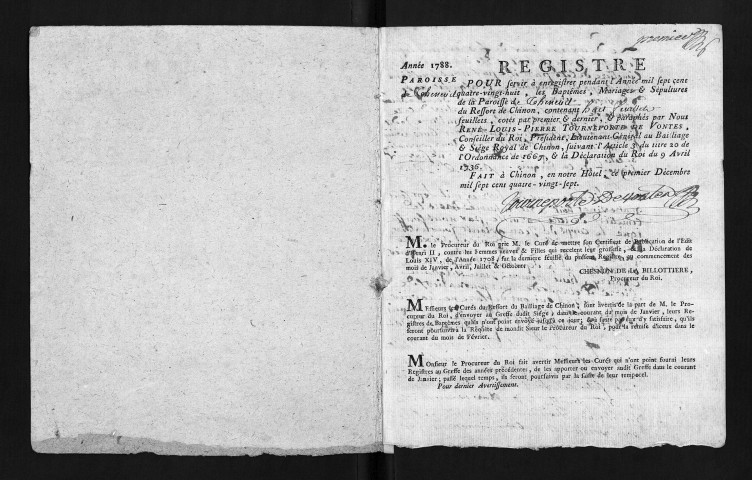 premier
Année 1788.
REGISTRE
PAROISSE
POUR servir à enregistrer pendant l'Année mil sept cent
quatre-vingt-huit, les Baptêmes, Mariages & Sépultures
de la Paroisse de
du Ressort de Chinon, contenant huit
feuillets, cotés par premier & dernier, & paraphés par Nous
RENÉ-LOUIS-PIERRE TOURNEPORTE DE VONTES,
Conseiller du Roi, Président, Lieutenant-Général au Bailliage
& Siège Royal de Chinon, suivant l'Article 3 du titre 20 de
l'Ordonnance de 1667, & la Déclaration du Roi du 9 Avril
1736.
FAIT à Chinon, en notre Hôtel, ce premier Décembre
mil sept cent quatre-vingt-sept.
Tourneporte De Vontes
M. le Procureur du Roi prie M. le Curé de mettre son Certificat de Publication de l'Edit
d'Henri II, contre les Femmes veuves & Filles qui recelent leur grossesse, & la Déclaration de
Louis XIV, de l'Année 1708, sur la derniere feuille du présent Registre, au commencement des
mois de Janvier, Avril, Juillet & Octobre.
CHESNON DE LA BILLOTTIERE,
Procureur du Roi.
Messieurs les Curés du Ressort du Bailliage de Chinon, sont avertis de la part de M. le Pro-
cureur du Roi, d'envoyer au Greffe dudit Siège, dans le courant du mois de Janvier, leurs Re-
gistres de Baptêmes qu'ils n'ont point envoyé jusqu'à ce jour; & faute par eux d'y satisfaire, qu'ils
seront poursuivis à la Requête de mondit Sieur le Procureur du Roi, pour la remise d'iceux dans le
courant du mois de Février.
Monsieur le Procureur du Roi fait avertir Messieurs les Curés qui n'ont point fourni leurs
Registres au Greffe des années précédentes, de les apporter ou envoyer audit Greffe dans le courant
de Janvier; passé lequel temps, ils seront poursuivis par la saisie de leur temporel.
Pour dernier Avertissement.